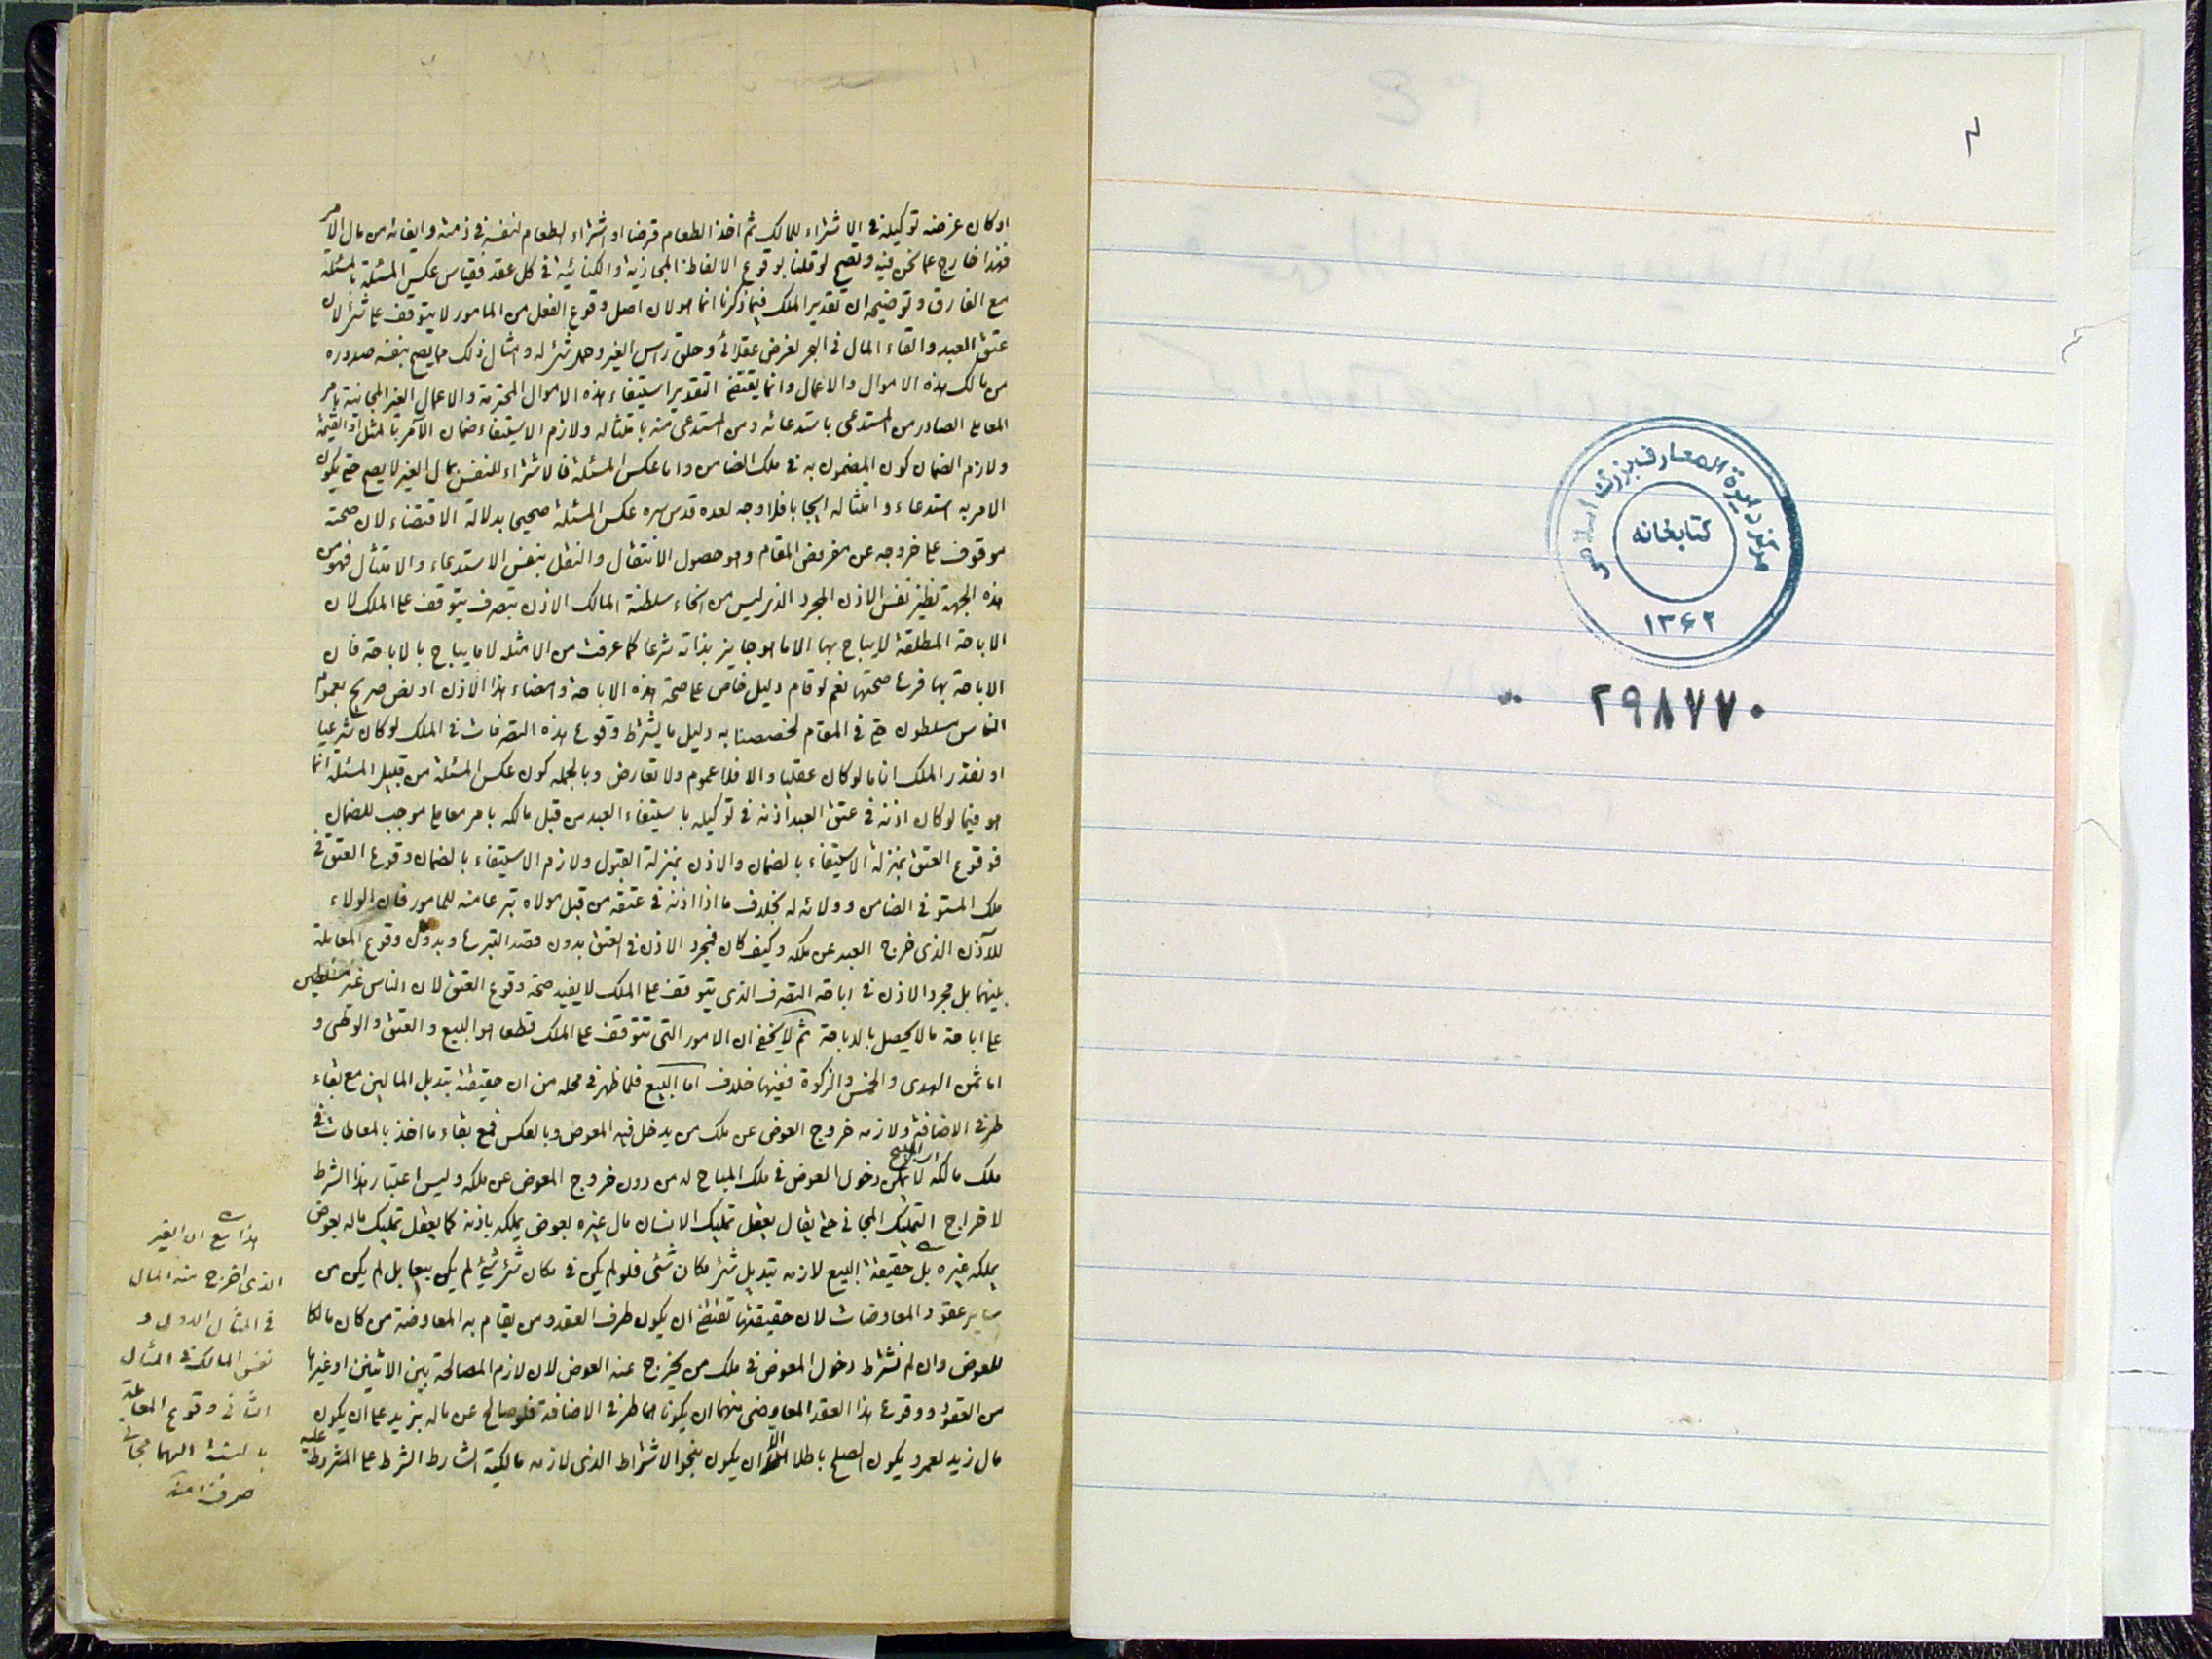 ٢
مرکز دایرة المعارف بزرگ اسلامی
کتابخانه
۱۳۶۲
۲۹۸۷۷۰
او كان غرضه توكيله فى الاشتراء للمالك ثم اخذ الطعام قرضا او اشتراء الطعام لنفسه فى ذمته وايفائه من مال الآمر
فهذا خارج عما نحن فيه وتصح لو قلنا بوقوع الالفاظ المجازية والكنائية فى كل عقد فقياس عكس المسئلة بالمسئلة
مع الفارق وتوضيحه ان تقدير الملك فيما ذكرنا انما هو لان اصل وقوع الفعل من المامور لا يتوقف على شئ لان
عتق العبد والقاء المال فى البحر لغرض عقلائى وحلق راس الغير وحمل شئ له وامثال ذلك مما يصح بنفسه صدوره
من مالك هذه الاموال والاعمال وانما يقتضى التقدير استيفاء هذه الاموال المحترمة والاعمال الغير المجانية بامر
المعاملى الصادر من المستدعى باستدعائه ومن المستدعى منه بامتثاله ولازم الاستيفاء ضمان الآمر بالمثل او القيمة
ولازم الضمان كون المضمون به فى ملك الضامن واما عكس المسئلة فالاشتراء للنفس بمال الغير لا يصح حتى يكون
الامر به استدعاء وامتثاله ايجابا فلا وجه لعده قدس سره عكس المسئلة صحيحا بدلالة الاقتضاء لان صحته
موقوف على خروجه عن مفروض المقام وهو حصول الانتقال والنقل بنفس الاستدعاء والامتثال فهو من
هذه الجهة نظير نفس الاذن المجرد الذى ليس من انحاء سلطنة المالك الاذن بتصرف يتوقف على الملك لان
الاباحة المطلقة لا يباح بها الا ما هو جايز بذاته شرعا كما عرفت من الامثله لا ما يباح بالاباحة فان
الاباحة بها فرع صحتها نعم لو قام دليل خاص على صحة هذه الاباحة وامضاء هذا الاذن او نص صريح بعموم
الناس مسلطون حتى فى المقام لخصصنا به دليل ما يشترط وقوع هذه التصرفات فى الملك لو كان شرعيا
او نقدر الملك انا ما لو كان عقليا والا فلا عموم ولا تعارض وبالجمله كون عكس المسئلة من قبيل المسئلة انما
هو فيما لو كان اذنه فى عتق العبد اذنه فى توكيله باستيفاء العبد من قبل مالكه بامر معاملى موجب للضمان
فوقوع العتق بمنزلة الاستيفاء بالضمان والاذن بمنزلة القبول ولازم الاستيفاء بالضمان وقوع العتق فى
ملك المستوفى الضامن وولائه له بخلاف ما اذا اذنه فى عتقه من قبل مولاه تبرعا منه للمامور فان الولاء
للآذن الذى خرج العبد عن ملكه وكيف كان فمجرد الاذن فى العتق بدون قصد التبرع وبدون وقوع المعاملة
بينهما بل مجرد الاذن فى اباحة التصرف الذى يتوقف على الملك لا يفيد صحة وقوع العتق لان الناس غير مسلطين
على اباحة ما لا يحصل بالاباحة ثم لا يخفى ان الامور التى تتوقف على الملك قطعا هو البيع والعتق والوطى و
اما ثمن الهدى والخمس والزكوة ففيها خلاف اما البيع فلما ظهر فى محله من ان حقيقته تبديل المالين مع بقاء
طرفى الاضافة ولازمه خروج العوض عن ملك من يدخل فيه المعوض وبالعكس فمع بقاء ما اخذ بالمعاطات فى
ملك مالكه لا يمكن دخول العوض فى ملك المباح له من دون خروج المعوض عن ملكه وليس اعتبار هذا الشرط
لاخراج التمليك المجانى حتى يقال يعقل تمليك الانسان مال غيره بعوض يملكه باذنه كما يعقل تمليك ماله بعوض
يملكه غيره بل حقيقة البيع لازمه تبديل شئ مكان شئ فلو لم يكن فى مكان شئ شئ لم يكن بيعا بل لم يكن من
ساير عقود المعاوضات لان حقيقتها تقتضى ان يكون طرف العقد ومن يقام به المعاوضة من كان مالكا
للعوض وان لم نشترط دخول المعوض فى ملك من يخرج عنه العوض لان لازم المصالحة بين الاثنين او غيرها
من العقود ووقوع هذا العقد المعاوضى بينهما ان يكونا هما طرفى الاضافة فلو صالح عن ماله بزيد على ان يكون
مال زيد لعمرو يكون الصلح باطلا الا ان يكون بنحو الاشتراط الذى لازمه مالكية الشارط الشرط على المشروط عليه
هذا مع ان الغير
الذى اخرج منه المال
فى المثال الاول و
نفس المالك فى المثال
الثانى وقوع المعاملة
بالنسبة اليهما مجانى
صرف منه